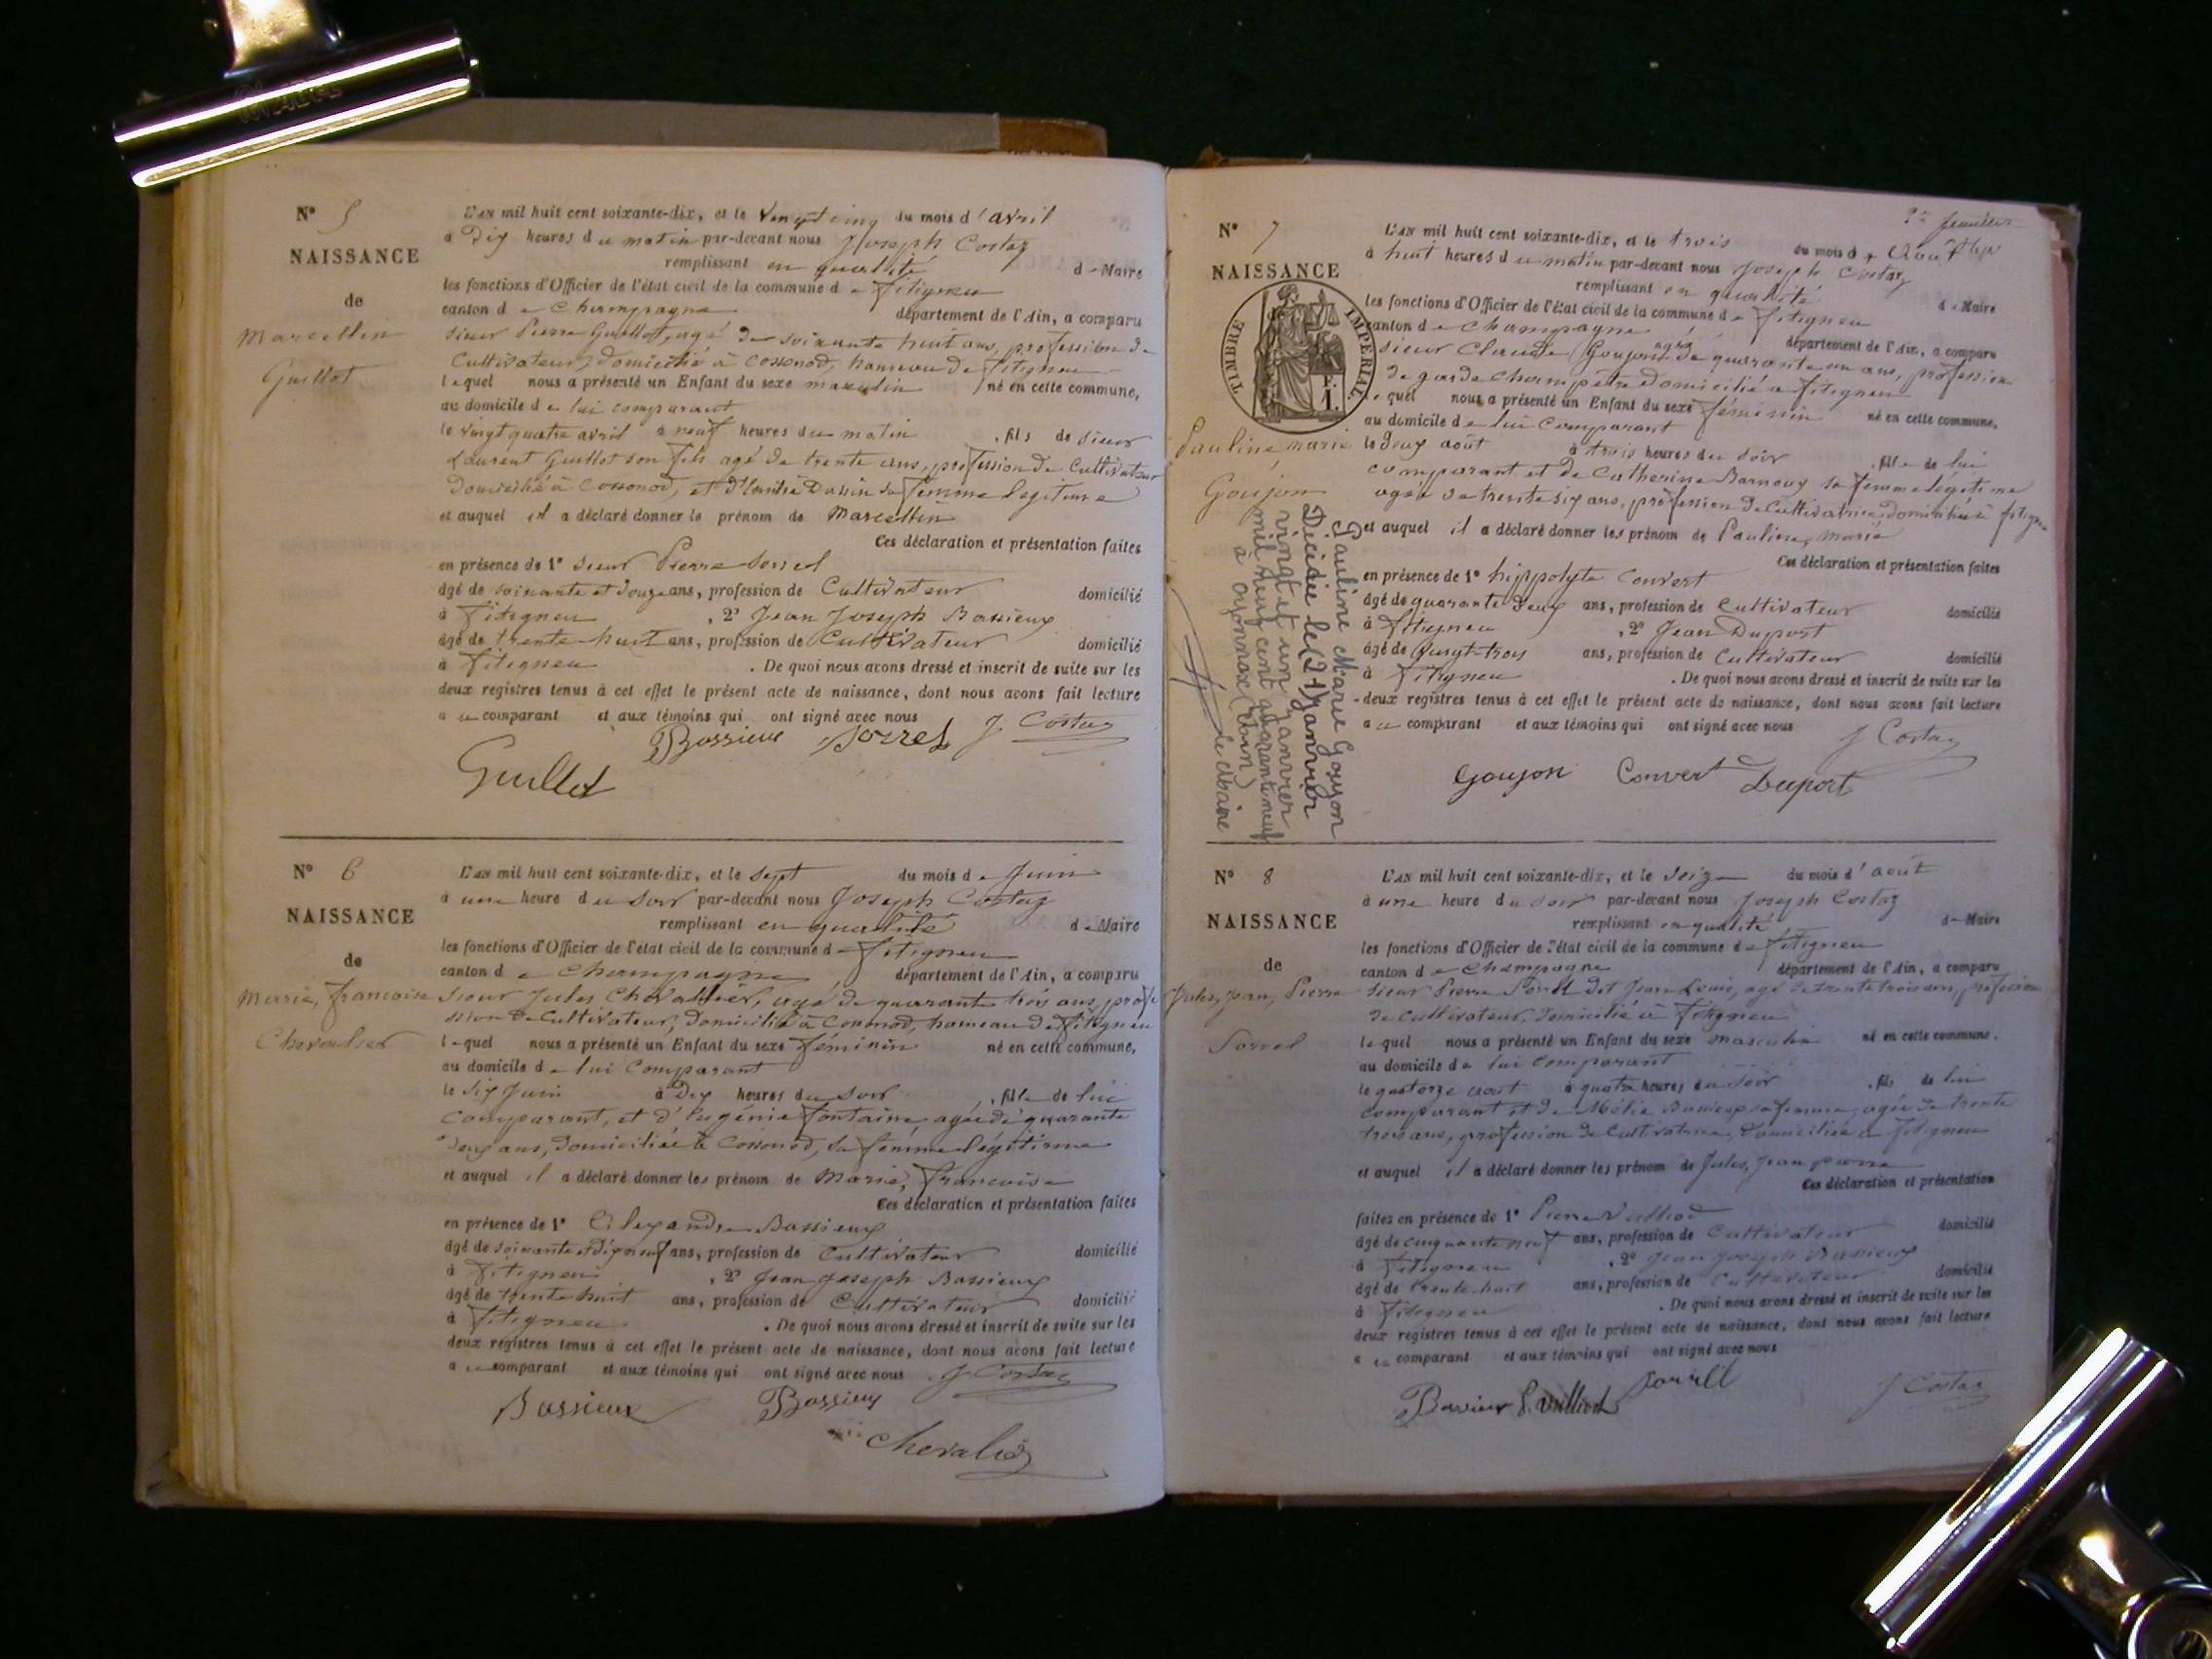 N° 5
NAISSANCE
de
Marcellin
Guillot
L'AN mil huit cent soixante-dix, et le vingt cinq du mois d'avril
à Dix heures du matin par-devant nous Joseph Costaz
remplissant en qualité de Maire
les fonctions d'Officier de l'état civil de la commune de Fitignieu
canton de Champagne département de l'Ain, a comparu
sieur Pierre Guillot, agé de soixante huit ans, profession de
Cultivateur, domicilié à Cossonod, hameau de Fitignieu
lequel nous a présenté un Enfant du sexe masculin né en cette commune,
au domicile de lui comparant
le vingt quatre avril à neuf heures du matin, fils de sieur
Laurent Guillot son fils agé de trente ans, profession de Cultivateur
Domicilié à Cossonod, et d' sa femme legitime
et auquel il a déclaré donner le prénom de Marcellin
Ces déclaration et présentation faites
en présence de 1° sieur Pierre Sorrel
âgé de soixante et douze ans, profession de Cultivateur domicilié
à Fitignieu, 2° Jean Joseph Bassieux
âgé de trente-huit ans, profession de Cultivateur domicilié
à Fitignieu. De quoi nous avons dressé et inscrit de suite sur les
deux registres tenus à cet effet le présent acte de naissance, dont nous avons fait lecture
au comparant et aux témoins qui ont signé avec nous J. Costaz
Bassieux Sorrel
Guillot
N° 6
NAISSANCE
de
Marie, francoise
Chevalier
L'AN mil huit cent soixante-dix, et le sept du mois de Juin
à une heure du soir par-devant nous Joseph Costaz
remplissant en qualité de Maire
les fonctions d'Officier de l'état civil de la commune de Fitignieu
canton de Champagne département de l'Ain, a comparu
sieur Jules Chevallier, agé de quarante trois ans, profe
ssion de Cultivateur, Domicilié à Cossonod, hameau de Fitignieu
lequel nous a présenté un Enfant du sexe féminin né en cette commune,
au domicile de lui Comparant
le six Juin à Dix heures du soir, fille de lui
Comparant, et d'Eugénie fontaine agée de quarante
deux ans, domiciliée à Cossonod, sa femme légitime
et auquel il a déclaré donner les prénom de Marie, francoise
Ces déclaration et présentation faites
en présence de 1° Alexandre Bassieux
âgé de soixante et dix neuf ans, profession de Cultivateur domicilié
à Fitignieu, 2° Jean Joseph Bassieux
âgé de trente huit ans, profession de Cultivateur domicilié
à Fitignieu. De quoi nous avons dressé et inscrit de suite sur les
deux registres tenus à cet effet le présent acte de naissance, dont nous avons fait lecture
au comparant et aux témoins qui ont signé avec nous J. Costaz
Bassieux Bassieux
Chevalier
N° 7
NAISSANCE
TIMBRE IMPÉRIAL
Pauline marie
Goujon
Pauline Marie Goujon
Décédée le (21) janvier
vingt et un janvier
mil neuf cent quarante neuf
à oyonnax (Ain)
le Maire
L'AN mil huit cent soixante-dix, et le trois du mois d'Août
à huit heures du matin par-devant nous Joseph Costaz
remplissant en qualité de Maire
les fonctions d'Officier de l'état civil de la commune de Fitignieu
canton de Champagne département de l'Ain, a comparu
sieur Claude Goujon agé de quarante un ans, profession
de garde champêtre domicilié à Fitignieu
lequel nous a présenté un Enfant du sexe féminin né en cette commune,
au domicile de lui comparant
le deux août à trois heures du soir, fille de lui
comparant et de Catherine sa femme légitime
agée de trente six ans, profession de Cultivatrice domiciliée à fitignieu
et auquel il a déclaré donner les prénom de Pauline, marie
Ces déclaration et présentation faites
en présence de 1° hippolyte Convert
âgé de quarante deux ans, profession de Cultivateur domicilié
à Fitignieu, 2° Jean Duport
âgé de vingt-trois ans, profession de Cultivateur domicilié
à Fitignieu. De quoi nous avons dressé et inscrit de suite sur les
deux registres tenus à cet effet le présent acte de naissance, dont nous avons fait lecture
au comparant et aux témoins qui ont signé avec nous
J Costaz
Goujon Convert Duport
N° 8
NAISSANCE
de
Jules, Jean, Pierre
Sorrel
L'AN mil huit cent soixante-dix, et le seize du mois d'août
à une heure du soir par-devant nous Joseph Costaz
remplissant en qualité de Maire
les fonctions d'Officier de l'état civil de la commune de Fitignieu
canton de Champagne département de l'Ain, a comparu
sieur Pierre Sorrel dit Jean Louis, agé de trente trois ans, profession
de cultivateur, domicilié à Fitignieu
lequel nous a présenté un Enfant du sexe masculin né en cette commune,
au domicile de lui comparant
le quatorze août à quatre heures du soir, fils de lui
comparant et de Mélie Bassieux sa femme, agée de trente
trois ans, profession de Cultivatrice, domiciliée à Fitignieu
et auquel il a déclaré donner les prénom de Jules, Jean pierre
Ces déclaration et présentation
faites en présence de 1° Pierre Vulliod
âgé de cinquante neuf ans, profession de Cultivateur domicilié
à Fitignieu, 2° Jean Joseph Bassieux
âgé de trente-huit ans, profession de Cultivateur domicilié
à Fitignieu. De quoi nous avons dressé et inscrit de suite sur les
deux registres tenus à cet effet le présent acte de naissance, dont nous avons fait lecture
au comparant et aux témoins qui ont signé avec nous
Bassieux P. Vulliod Sorrel J Costaz